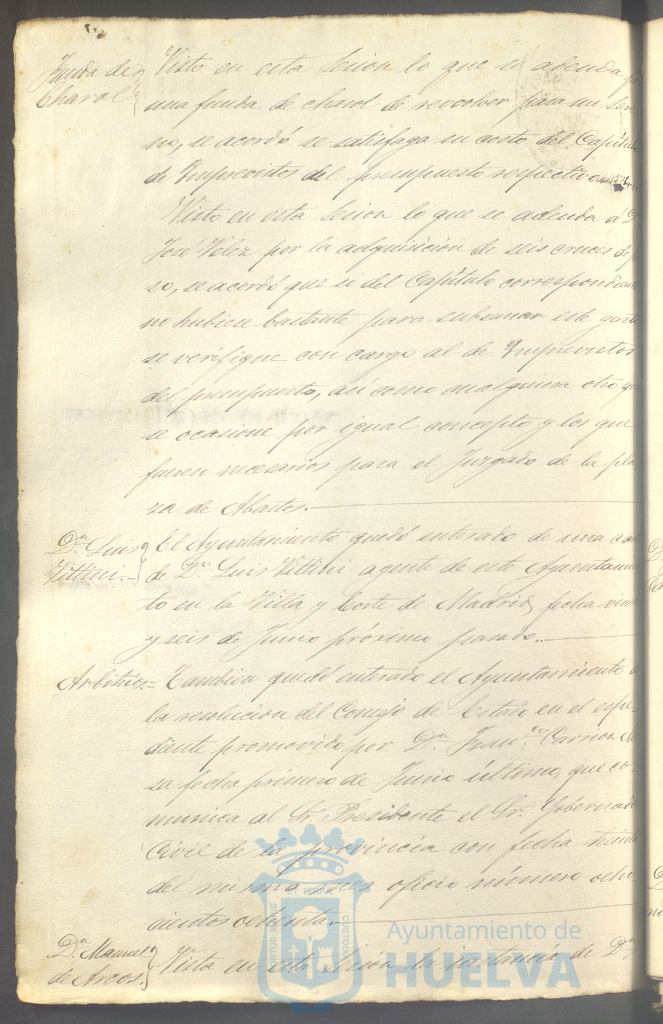 Funda de
Charol
Visto en esta Sesion lo que se adeuda
una funda de charol de revolver para un
no, se acordó se satisfaga su costo del Capítulo
de Imprevistos del presupuesto respectivo
Visto en esta Sesion lo que se adeuda á D.
José Velez por la adquisicion de seis cruces de
so, se acordó que si del Capítulo correspondiente
no hubiese bastante para subsanar este gasto
se verifique con cargo al de Imprevistos
del presupuesto, asi como cualquiera otro que
se ocasione por igual concepto y los que
fuesen necesarios para el Juzgado de la pla
za de Abastos.
Dn. Luis
Vittini.
El Ayuntamiento quedó enterado de una
de Dn. Luis Vittini agente de este Ayuntamien
to en la Villa y Corte de Madrid fecha veinte
y seis de Junio próximo pasado.
Arbitrios.=
Tambien quedó enterado el Ayuntamiento
la resolucion del Consejo de Estado en el espe-
diente promovido por Dn. Carrion
sa fecha primero de Junio último, que co-
munica al Sr. Presidente el Sr. Gobernador
Civil de la provincia con fecha treinta
del mismo mes oficio número ocho
cientos ochenta.
Dn. Manuel
de Arcos.
Vista en esta Sesion la instancia de Dn.
PORTUS MARIS
ET TERRÆ
CUSTODIA
Ayuntamiento de
HUELVA